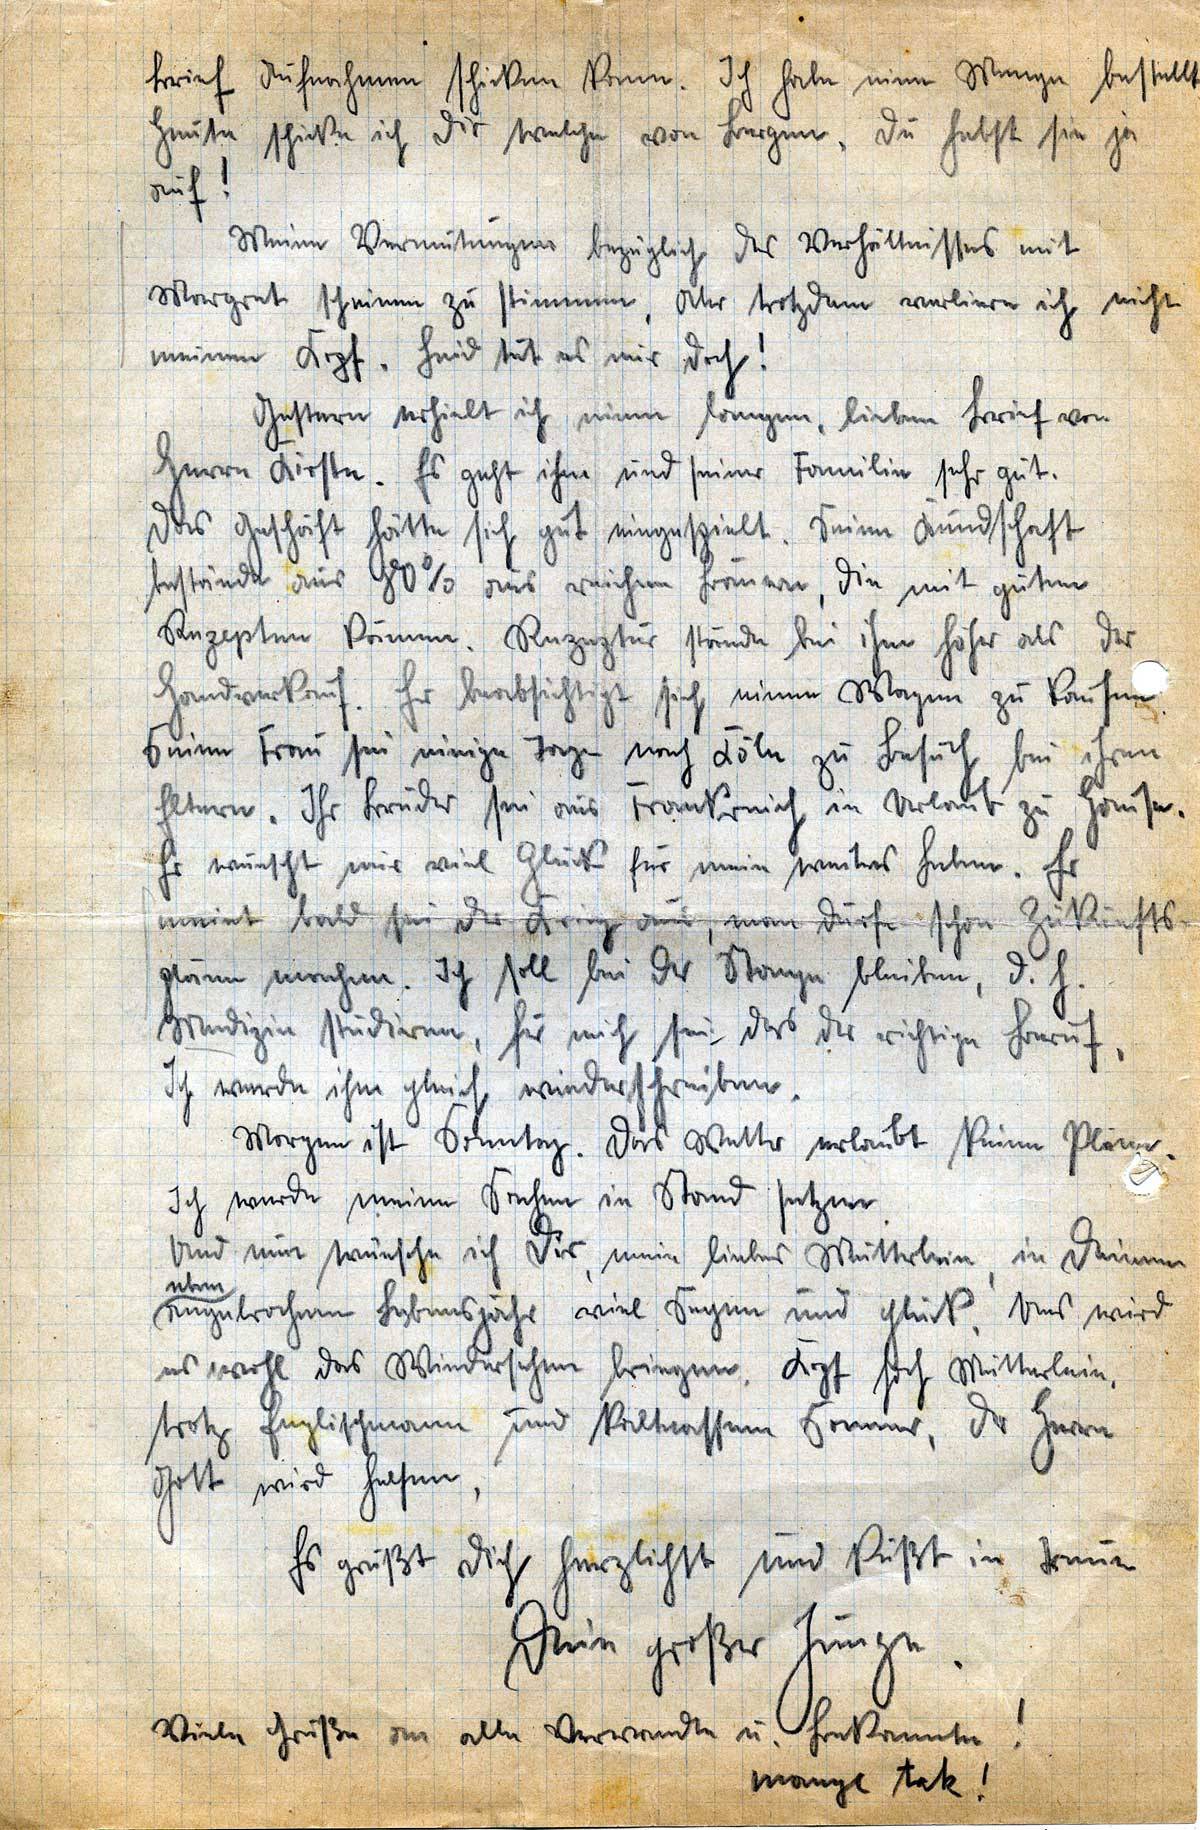 Brief Aufnahmen schicken kann. Ich habe eine Menge bestellt
Heute schicke ich Dir welche von Bergen. Du hebst sie ja
auf!
Meine Vermutungen bezüglich des Verhältnisses mit
Margret scheinen zu stimmen, aber trotzdem verliere ich nicht
meinen Kopf. Leid tut es mir doch!
Gestern erhielt ich einen langen, lieben Brief von
Herrn Kirste. Es geht ihm und seiner Familie sehr gut.
Das Geschäft hätte sich gut eingespielt. Seine Kundschaft
bestände aus 90% aus reichen Bauern, die mit guten
Rezepten kämen. Rezeptur stände bei ihm höher als der
Handverkauf. Er beabsichtigt sich einen Wagen zu kaufen.
Seine Frau sei einige Tage nach Köln zu Besuch bei ihren
Eltern. Ihr Bruder sei aus Frankreich in Urlaub zu Hause.
Er wünscht mir viel Glück für mein weitres Leben. Er
meint bald sei der Krieg aus, man dürfe schon Zukunfts-
pläne machen. Ich soll bei der Stange bleiben, d. h.
Medizin studieren, für mich sei das der richtige Beruf.
Ich werde ihm gleich wiederschreiben.
Morgen ist Sonntag. Das Wetter erlaubt keine Pläne.
Ich werde meine Sachen in Stand setzen.
Und nun wünsche ich Dir, mein liebes Mütterlein, in Deinem
eben
angebrochenen Lebensjahr viel Segen und Glück. Uns wird
es wohl das Wiedersehen bringen. Kopf hoch Mütterlein,
trotz Englischmann und kaltnassem Sommer, der Herre
Gott wird helfen,
Es grüßt Dich herzlichst und küßt in Treue
Dein großer Junge.
Viele Grüße an alle Verwandte u. Bekannte!
mange tak!